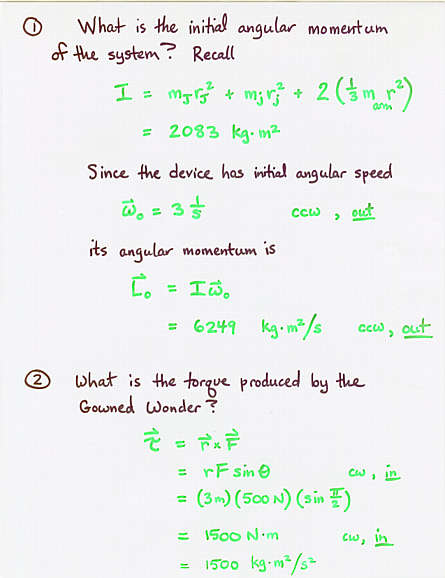 ① What is the initial angular momentum
of the system? Recall
I = m_J r_J² + m_j r_j² + 2 (⅓ m_arm r²)
= 2083 kg·m²
Since the device has initial angular speed
ω⃗₀ = 3 1/s ccw, out
its angular momentum is
L⃗₀ = Iω⃗₀
= 6249 kg·m²/s ccw, out
② What is the torque produced by the
Gowned Wonder?
τ⃗ = r⃗ × F⃗
= rF sin θ cw, in
= (3m)(500 N)(sin π/2)
= 1500 N·m cw, in
= 1500 kg·m²/s²